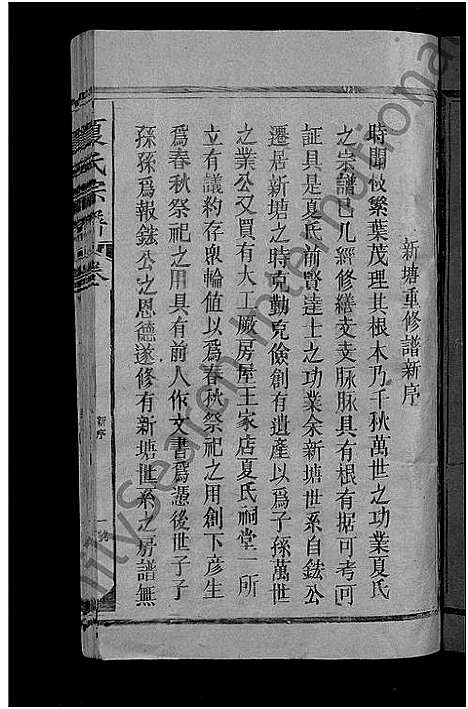 新塘重修譜新序
時聞枝繁葉茂理其根木乃千秋萬世之功業夏氏
之宗譜已几經修繕支支脉脉具有根有据可考可
証具是夏氏前賢達士之功業余新塘世系自鈜公
遷居新塘之時克勤克儉創有遺產以爲子孫萬世
之業公又買有大工廠房屋王家店夏氏祠堂一所
立有議約存衆輪值以爲春秋祭祀之用創下彦生
爲春秋祭祀之用具有前人作文書爲憑後世子子
孫孫爲報鈜公之恩德遂修有新塘世系之房譜無
夏氏宗譜 卷
新序
一